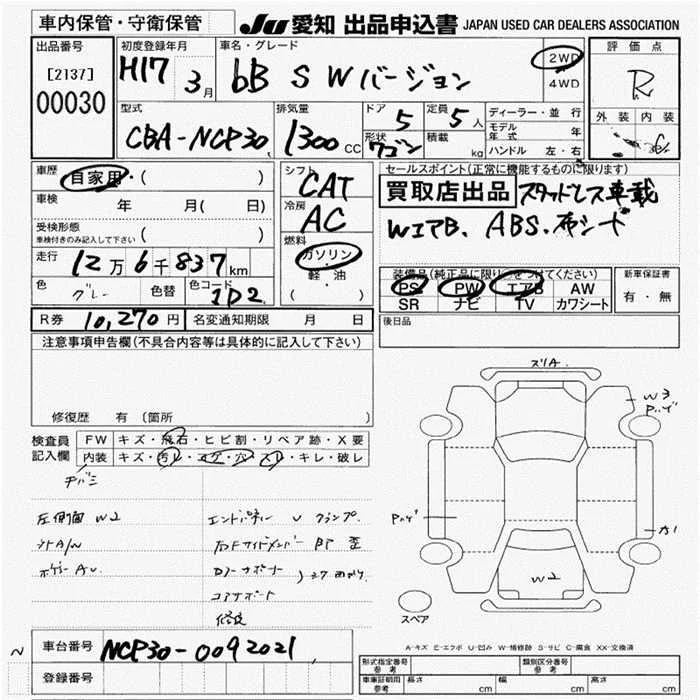 車内保管・守衛保管
JU 愛知 出品申込書 JAPAN USED CAR DEALERS ASSOCIATION
出品番号
[2137]
00030
初度登録年月
H17 3月
車名・グレード
bB S Wバージョン
2WD
4WD
評価点
R
外装 内装
型式
CBA-NCP30
排気量
1300 CC
ドア
5
定員
5人
形状
ワゴン
積載
kg
ディーラー・並行
モデル年式 年
ハンドル 左・右
車歴
自家用・( )
車検 年 月( 日)
受検形態
車検付きのみ記入して下さい ( )
走行
12万6千837km
色 グレー 色替 色コード 1D2
シフト
CAT
冷房
AC
燃料
ガソリン
・
軽・油
( )
セールスポイント(正常に機能するものに限ります)
買取店出品 スタッドレス車載
WエアB、ABS、布シート
装備品(純正品に限り○をつけてください)
PS PW エアB AW
SR ナビ TV カワシート
新車保証書
有・無
R券 10,270円 名変通知期限 月 日
後日品
注意事項申告欄(不具合内容等は具体的に記入して下さい)
修復歴 有 (箇所
検査員記入欄
FW キズ・飛石・ヒビ割・リペア跡・X要
内装 キズ・汚れ・コゲ・穴・スレ・キレ・破レ
左側面 W2
エンドパネル U クランプ
修復
スリA
W3
W2
A1
スペア
A-キズ E-エクボ U-凹み W-補修跡 S-サビ C-腐食 XX-交換済
車台番号 NCP30-0092021
登録番号
形式指定番号 参考
類別区分番号 参考
車庫証明用 参考
長さ cm 幅 cm 高さ cm